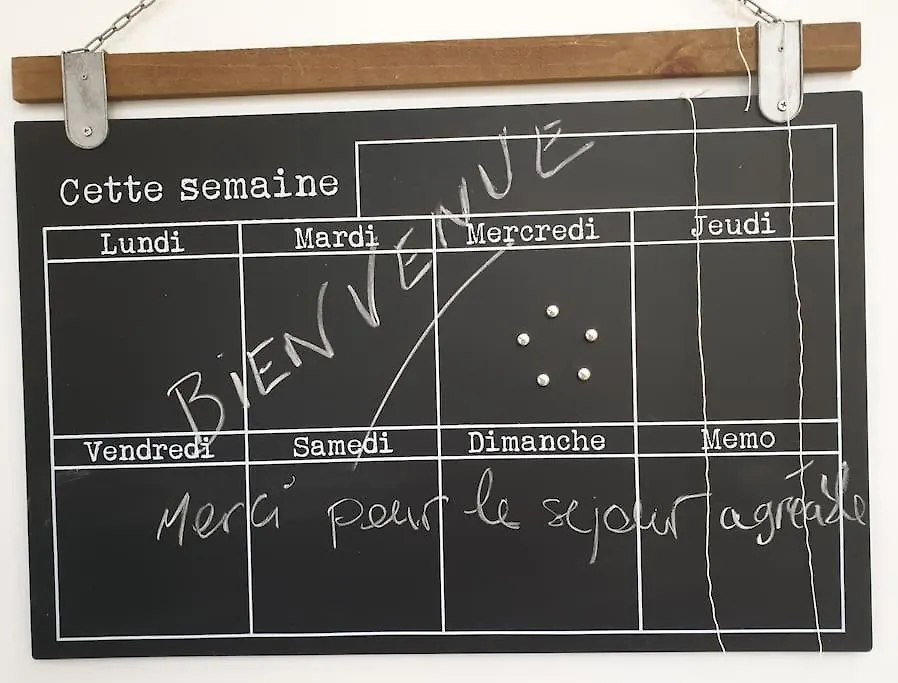 Cette semaine
BIENVENUE
Lundi Mardi Mercredi Jeudi
Vendredi Samedi Dimanche Memo
Merci pour le sejour agréable